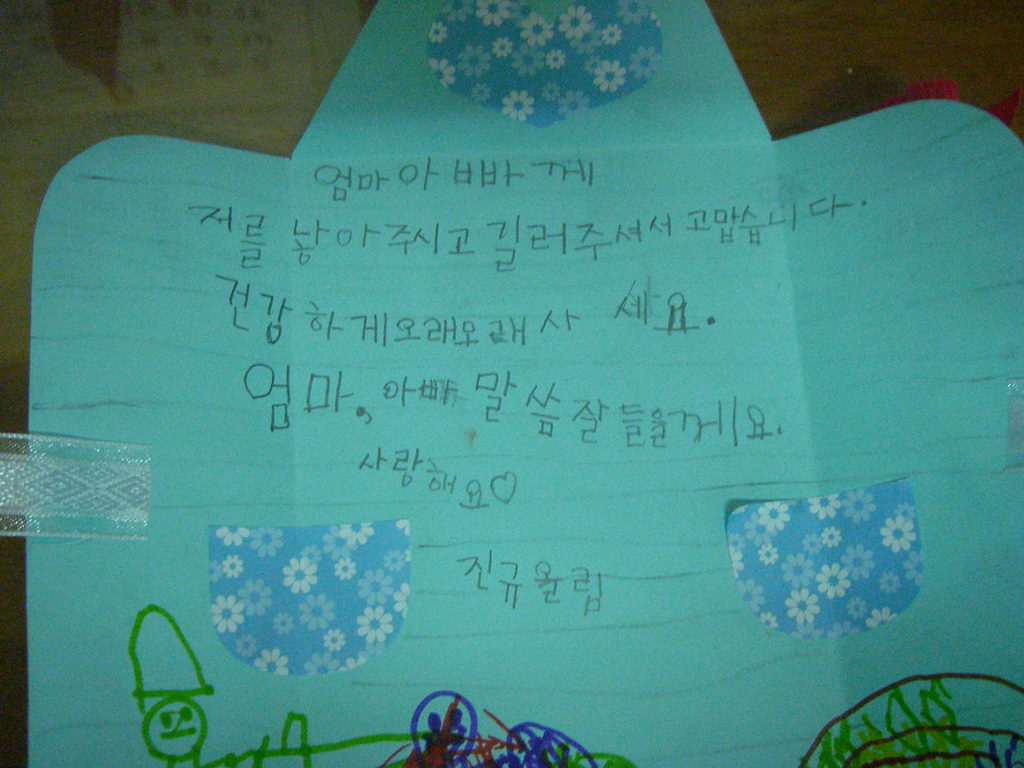 엄마아빠께
저를 낳아주시고 길러주셔서 고맙습니다.
건강하게오래오래사세요.
엄마, 아빠말씀잘들을께요.
사랑해요♡
진규올림